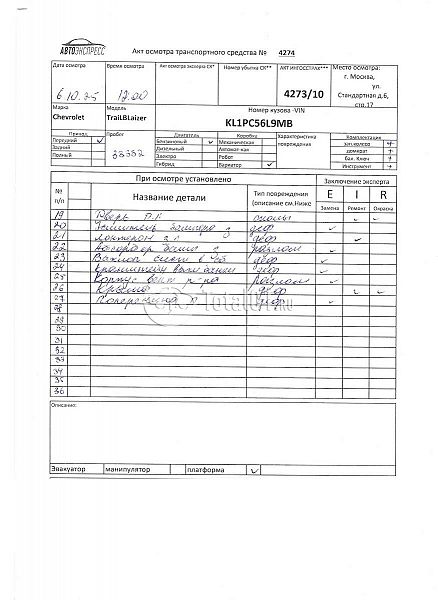 АВТОЭКСПРЕСС
Акт осмотра транспортного средства № 4274
Дата осмотра Время осмотра Акт осмотра эксперта СК* Номер убытка СК** АКТ ИНГОССТРАХ*** Место осмотра:
г. Москва,
ул.
6.10.25 12.00 4273/10 Стандартная д.6,
стр.17
Марка Модель Номер кузова -VIN
Chevrolet TrailBLaizer KL1PC56L9MB
Привод Пробег Двигатель Коробка Характеристика повреждения Комплектация
Передний ✓ Бензиновый ✓ Механическая зап.колесо +
Задний Дизельный Автомат-кая домкрат +
Полный 38332 Электро Робот бал. Ключ +
Гибрид Вариатор ✓ Инструмент +
При осмотре установлено Заключение эксперта
№ п/п Название детали Тип повреждения (описание см.Ниже E I R
Замена Ремонт Окраска
19 Дверь п.л сколы ✓ ✓
20 деф ✓
21 деф ✓
22 разлом ✓
23 деф ✓
24 деф ✓
25 разлом ✓
26 Крыша деф ✓ ✓
27 Поперечина деф ✓
28
29
30
31
32
33
34
35
36
TotalCar.RU
Описание:
Эвакуатор манипулятор платформа ✓